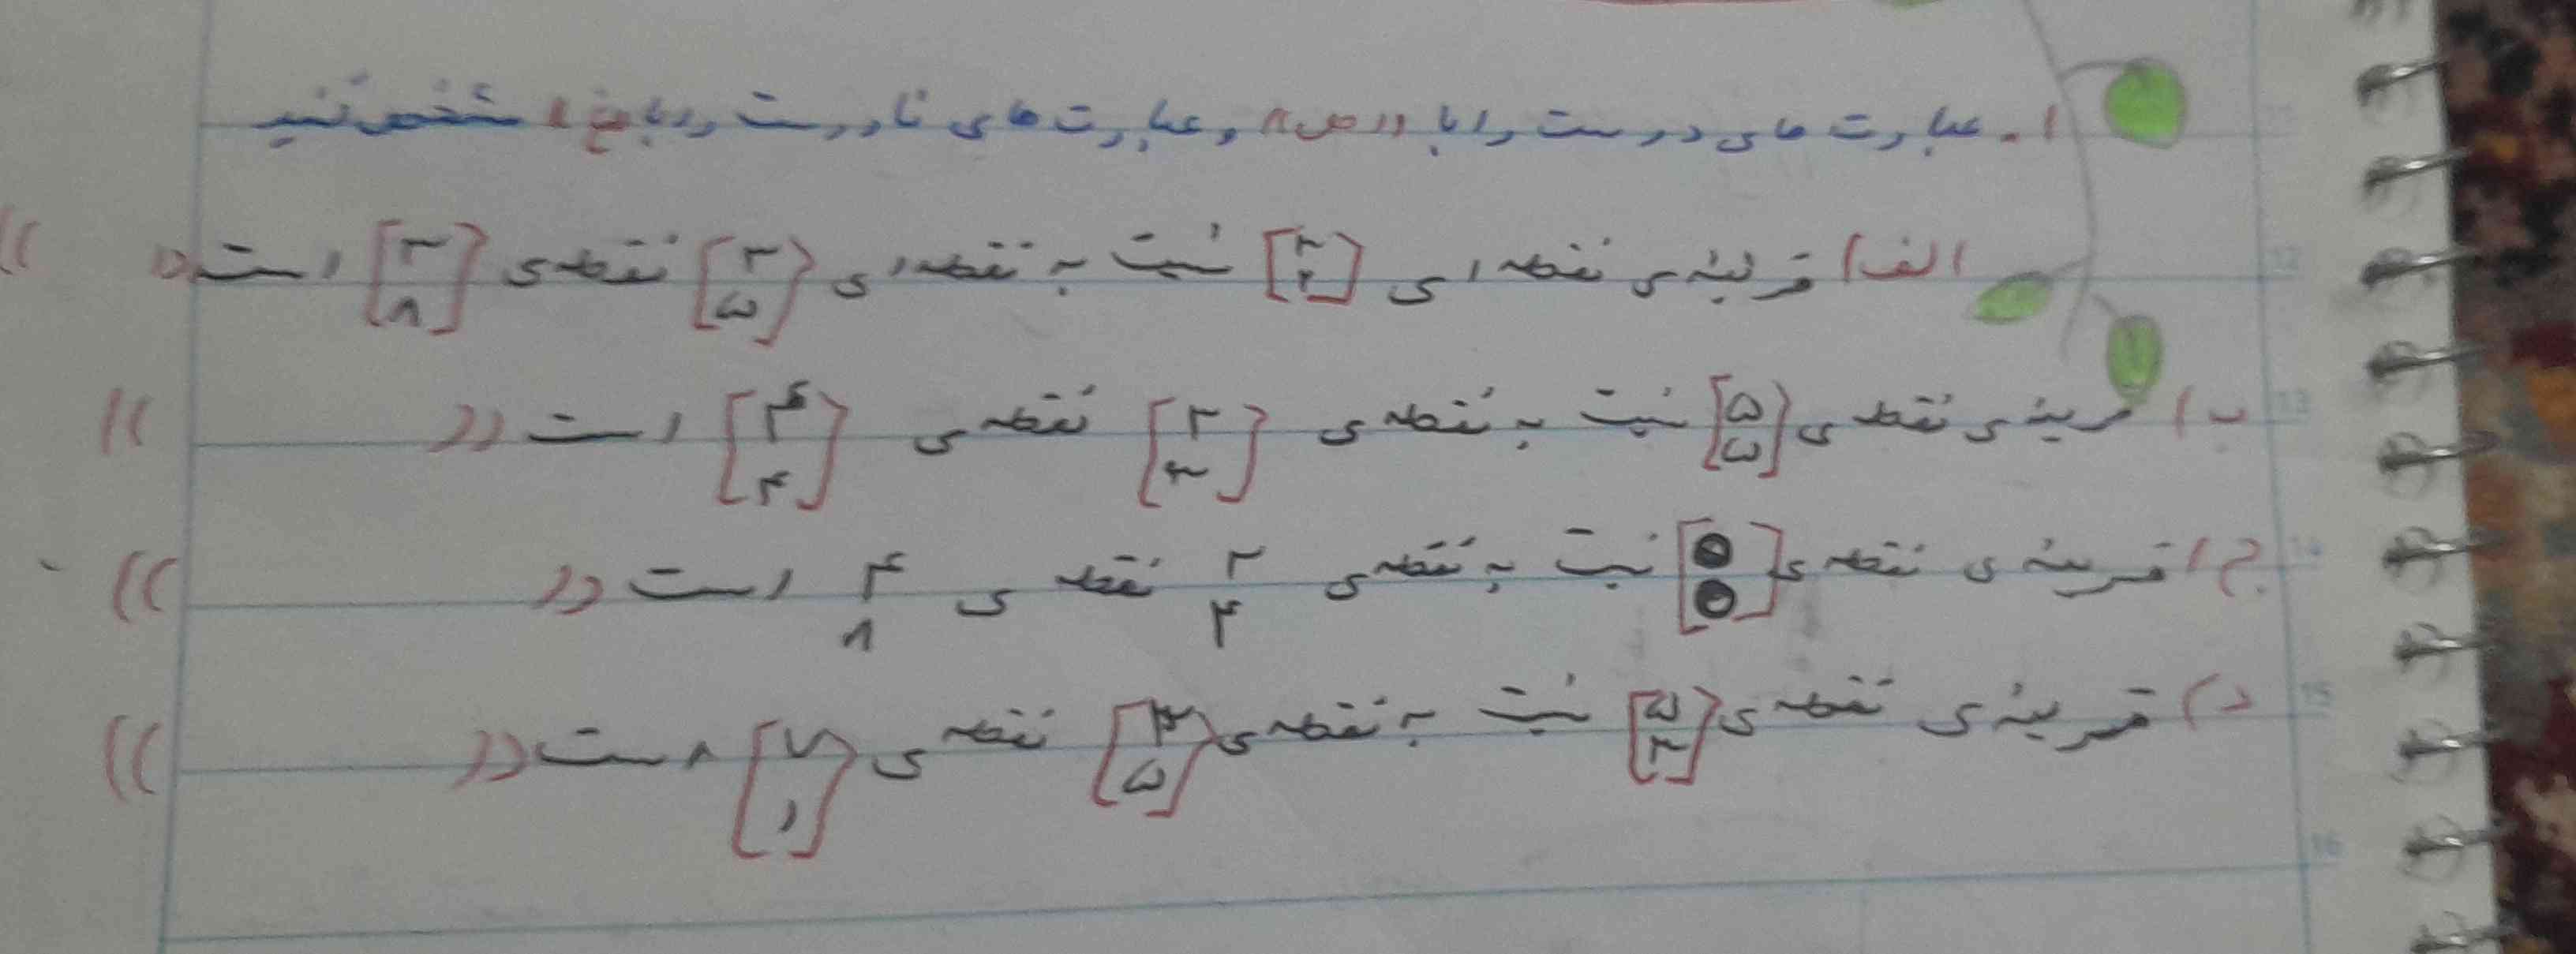 ۱ـ عبارت های درست را با «ص» و عبارت های نادرست را با «غ» مشخص کنید
الف) قرینه ی نقطه ای [۲ ۲] نسبت به نقطه ای [۲ ۵] نقطه ی [۲ ۸] است « »
ب) قرینه ی نقطه ی [۵ ۵] نسبت به نقطه ی [۲ ۳] نقطه ی [۴ ۴] است « »
ج) قرینه ی نقطه ی [۰ ۰] نسبت به نقطه ی ۲ ۴ نقطه ی ۴ ۸ است « »
د) قرینه ی نقطه ی [۵ ۲] نسبت به نقطه ی [۳ ۵] نقطه ی [۷ ۱] است « »